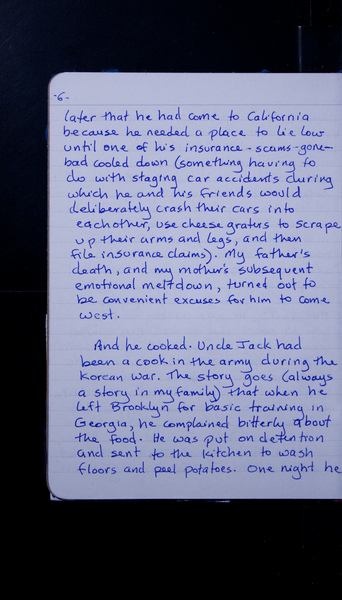 -6-
later that he had come to California
because he needed a place to lie low
until one of his insurance-scams-gone-
bad cooled down (something having to
do with staging car accidents during
which he and his friends would
deliberately crash their cars into
each other, use cheese graters to scrape
up their arms and legs, and then
file insurance claims). My father's
death, and my mother's subsequent
emotional meltdown, turned out to
be convenient excuses for him to come
west.
And he cooked. Uncle Jack had
been a cook in the army during the
Korean War. The story goes (always
a story in my family) that when he
left Brooklyn for basic training in
Georgia, he complained bitterly about
the food. He was put on detention
and sent to the kitchen to wash
floors and peel potatoes. One night he